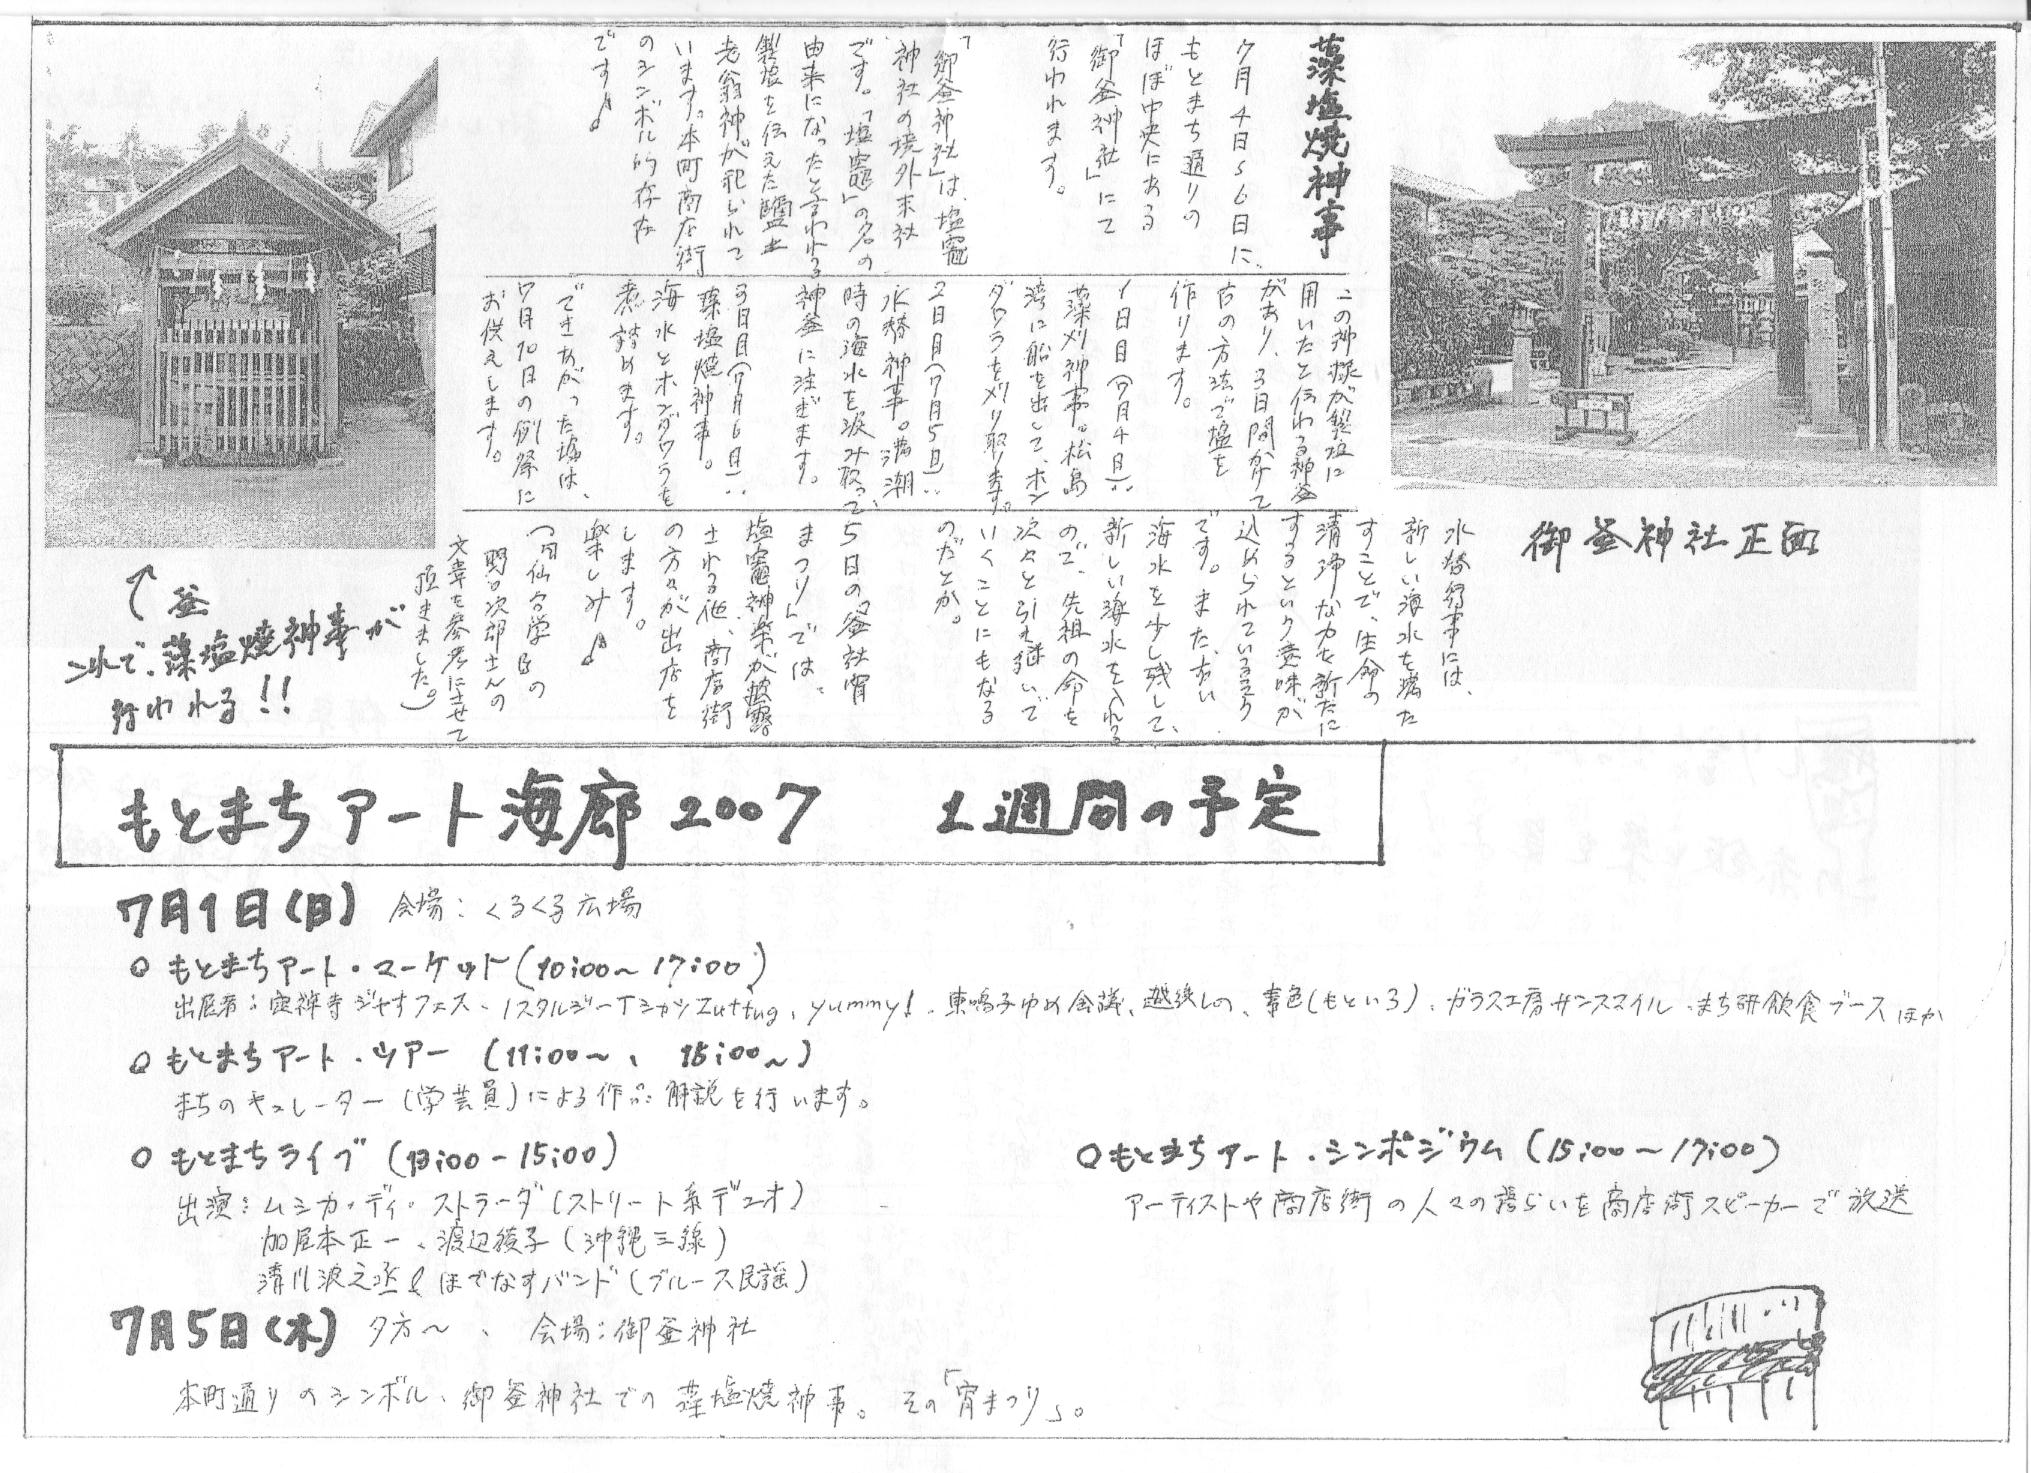 藻塩焼神事
7月4日〜6日に、
もとまち通りの
ほぼ中央にある
「御釜神社」にて
行われます。
「御釜神社」は、塩竈
神社の境外末社
です。「塩竈」の名の
由来になったと言われる
製塩を伝えた鹽土
老翁神が祀られて
います。本町商店街
のシンボル的存在
です♪
この神様が製塩に
用いたと伝わる神釜
があり、3日間かけて
古の方法で塩を
作ります。
1日目(7月4日):
藻刈神事。松島
湾に船を出して、ホン
ダワラを刈り取ります。
2日目(7月5日):
水替神事。満潮
時の海水を汲み取って、
神釜に注ぎます。
3日目(7月6日):
藻塩焼神事。
海水とホンダワラを
煮詰めます。
できあがった塩は、
7月10日の例祭に
お供えします。
水替行事には、
新しい海水を満た
すことで、生命の
清浄な力を新たに
するという意味が
込められているそう
です。また、古い
海水を少し残して、
新しい海水を入れる
ので、先祖の命を
次々と引き継いで
いくことにもなる
のだとか。
5日の「釜社宵
まつり」では、
塩竈神楽が披露
される他、商店街
の方々が出店を
します。
楽しみ♪
(国仙台学Bの
関口次郎さんの
文章を参考にさせて
頂きました。)
御釜神社正面
↑釜
これで、藻塩焼神事が
行われる!!
もとまちアート海廊2007 1週間の予定
7月1日(日) 会場:くるくる広場
○もとまちアート・マーケット(10:00〜17:00)
出店者:定禅寺ジャズフェス、ノスタルジーTシャツzuttug、yummy!、東鳴子ゆめ会議、越後しの、素色(もといろ)、ガラス工房サンスマイル、まち研飲食ブースほか
○もとまちアート・ツアー (11:00〜、 15:00〜)
まちのキュレーター(学芸員)による作品解説を行います。
○もとまちライブ(13:00-15:00)
出演:ムシカ・ディ・ストラーダ(ストリート系デュオ)
加屋本正一、渡辺綾子(沖縄三線)
清川波之丞&ほでなすバンド(ブルース民謡)
○もとまちアート・シンポジウム(15:00〜17:00)
アーティストや商店街の人々の語らいを商店街スピーカーで放送
7月5日(木) 夕方〜、 会場:御釜神社
本町通りのシンボル、御釜神社での藻塩焼神事。その「宵まつり」。